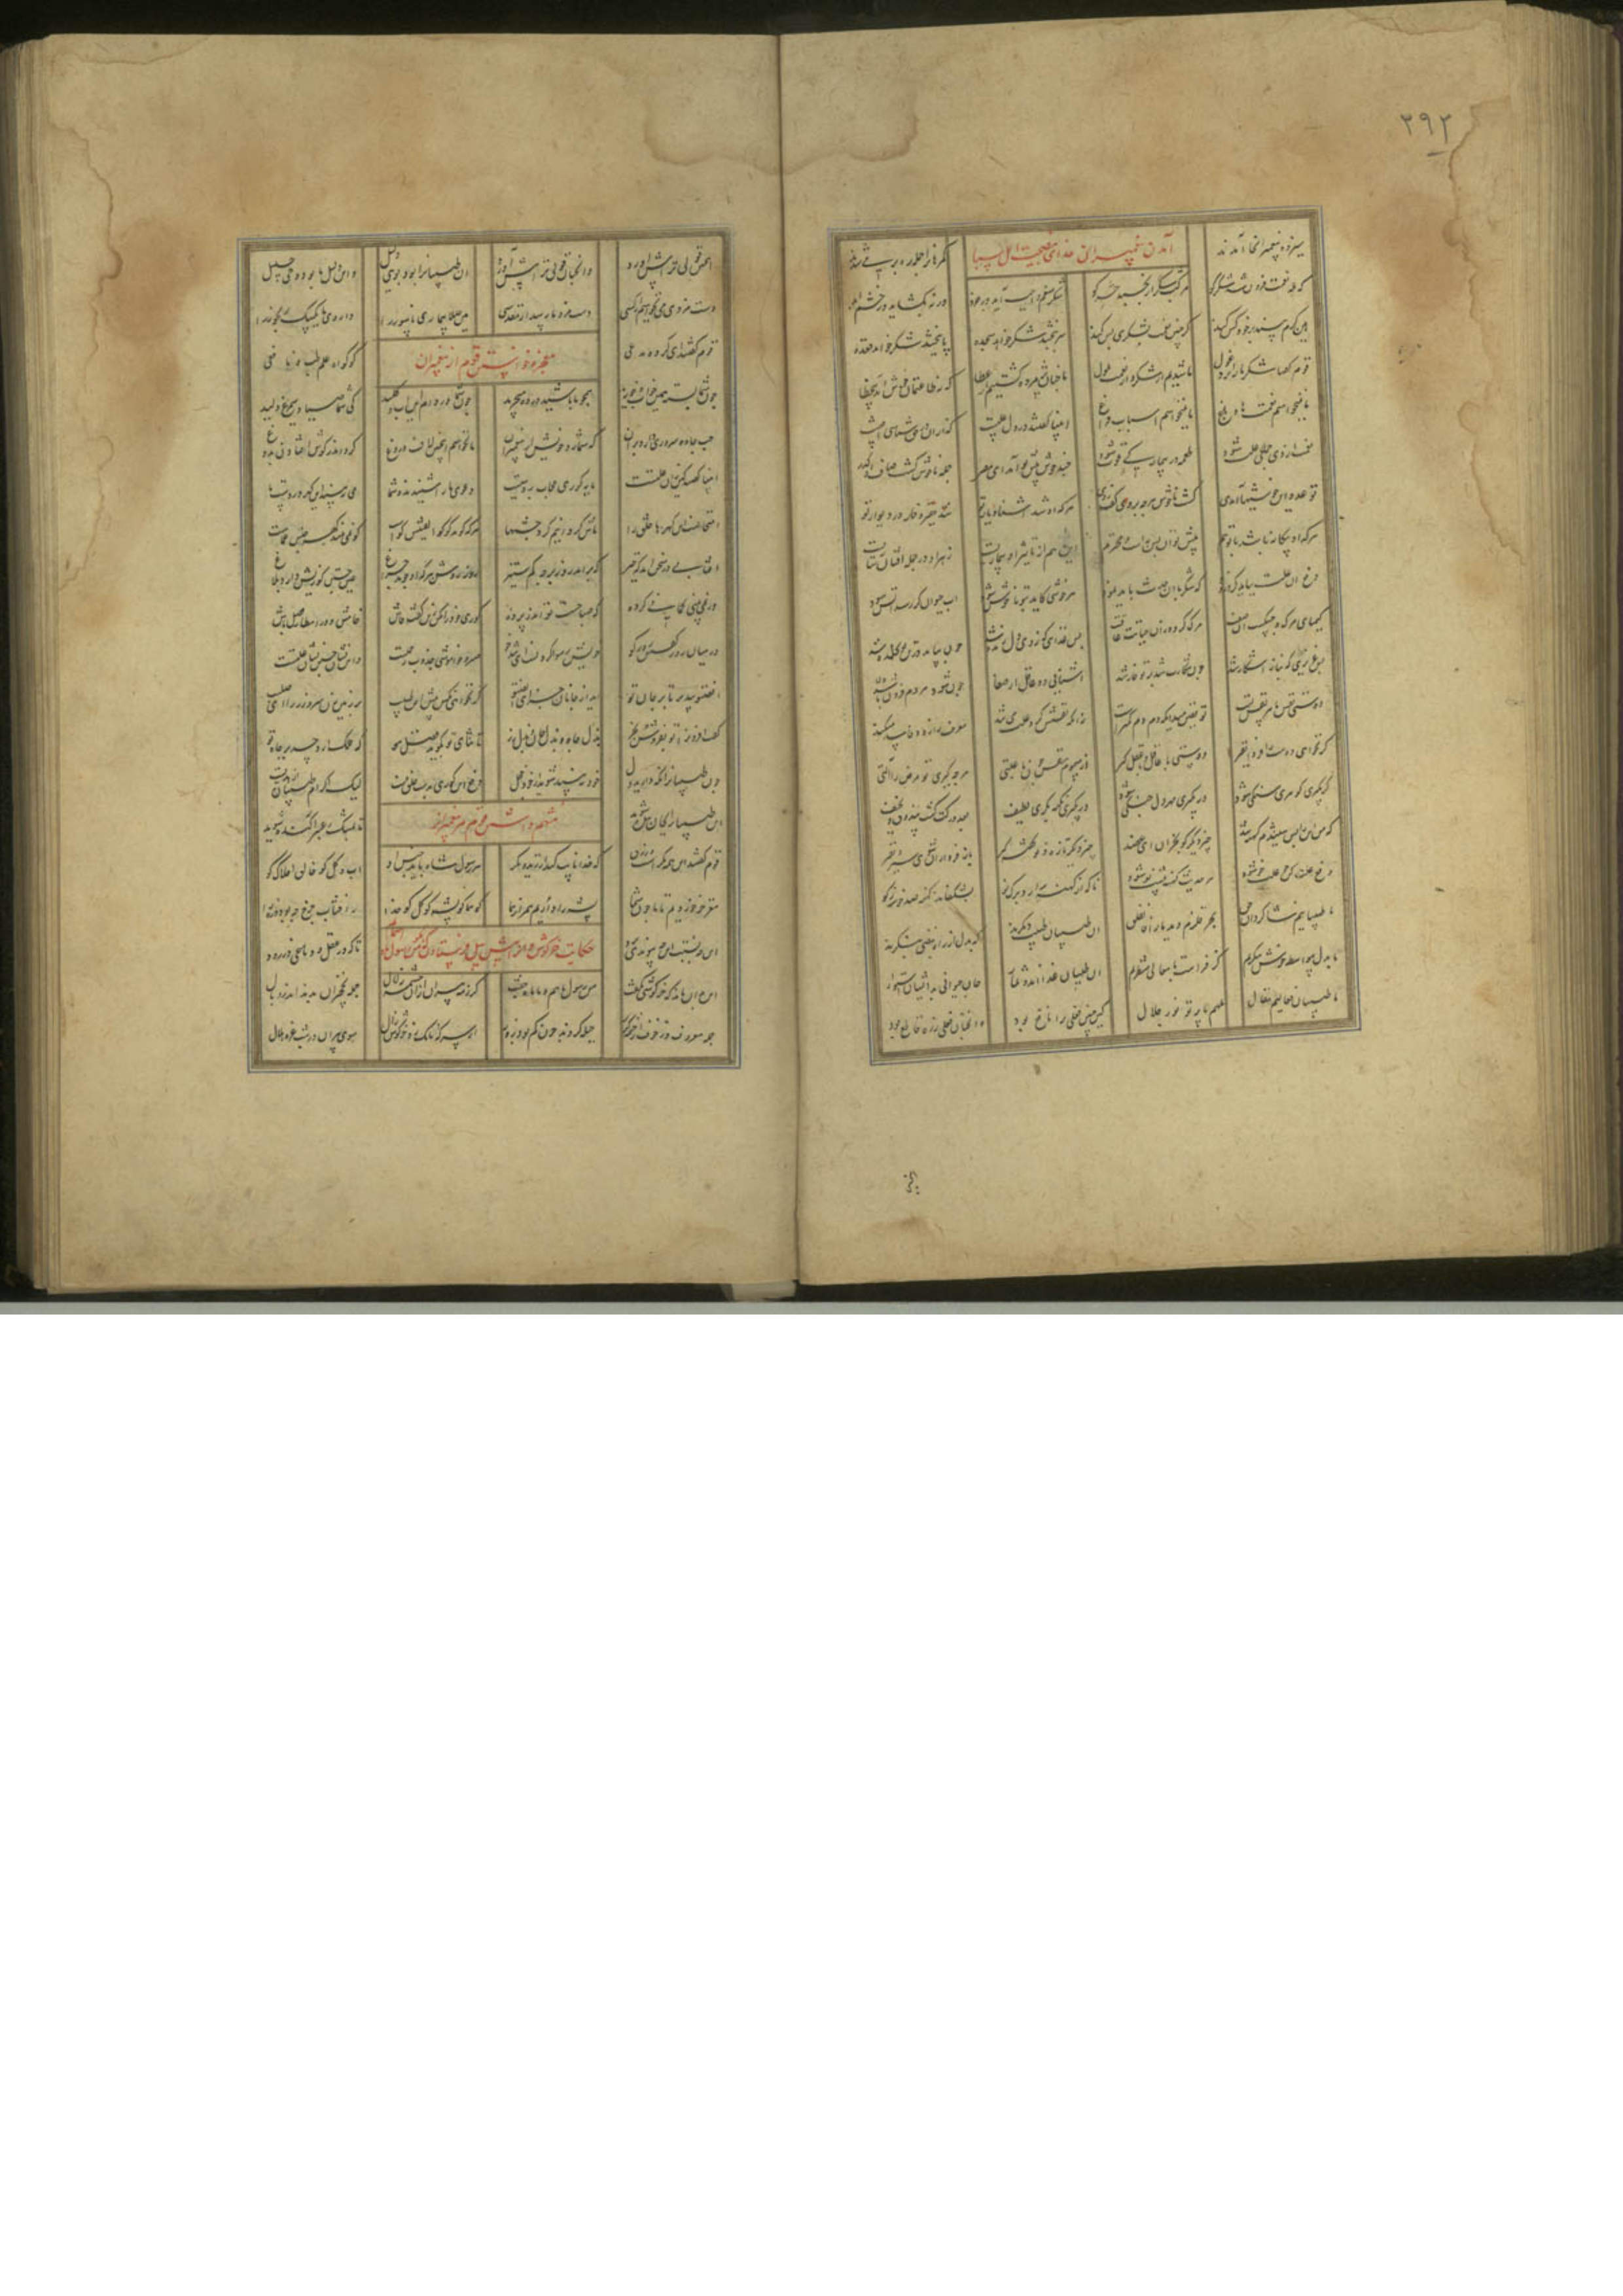 ۲۹۲
سیزده پیغمبر آنجا آمدند گمرهانرا جمله رهبر می شدند
آمدن پیغمبران خدای بنصیحت اهل سبا
که هله نعمت فزون شد شکر کو مرکب شکر ار بخسبد حرکو شکر منعم واجب آید در خرد ورنه بگشاید در خشم ابد
هین کرم بینید و این خود کس کند کز چنین نعمت بشکری بس کند سر ببخشد شکر خواهد سجده پا ببخشد شکر خواهد قعده
قوم گفتند شکر ما را برد غول ما شدیم از شکر و از نعمت ملول ما چنان پژمرده گشتیم از عطا که نه طاعتمان خوش آید نه خطا
ما نمیخواهیم نعمتها و باغ ما نمیخواهیم اسباب و فراغ انبیا گفتند در دل علتیست که از آن در حق شناسی آفتیست
نعمت از وی جملگی علت شود طعمه در بیمار کی قوت شود چند خوش پیش تو آمد ای مصر جمله ناخوش گشت و صاف او کدر
تو عدو این خوشیها آمدی گشت ناخوش هر چه بروی کف زدی هر که او شد آشنا و یار تو شد حقیر و خوار در دیدار تو
هر که او بیگانه باشد با تو هم پیش تو او بس مهست و محترم این هم از تاثیر آن بیماریست زهر او در جمله جفتان ساریست
دفع آن علت بباید کرد زود که شکر با آن حدث خواهد نمود هر خوشی کاید بتو ناخوش شود آب حیوان گر رسد آتش شود
کیمیای مرگ و جسکست آن صفت مرگ گردد زان حیاتت عاقبت بس غذای کو ز وی دل زنده شد چون بیامد در تن تو گنده شد
بس عزیزی که بناز اشکار شد چون شکارت شد بر تو خوار شد آشنایی دو عاقل از صفا چون شود هر دم فزون باشد ولا
دوستی نفس با هر نفس پست تو یقین میدان که دم دم کمترست زانکه نفسش گرد علت می تند معرفت را زود فاسد میکند
گر نخواهی دوست را فردا نفیر دوستی با عاقل و با عقل گیر از سموم نفس چون با علتی هر چه گیری تو مرض را آلتی
گر بگیری گوهری سنگی شود ور بگیری مهر دل جنگی شود ور بگیری نکته بکری لطیف بعد درکت گشت بی ذوق و کثیف
که من این را بس شنیدم کهنه شد چیز دیگر گو بجز آن ای عضد چیز دیگر تازه و نو گفته گیر باز فردا زان شوی سیر و نفیر
دفع علت کن چو علت خو شود هر حدیث کهنه پیشت نو شود تا که از کهنه برآرد برگ نو بشکفاند کهنه صد خوشه ز گو
ما طبیبانیم شاگردان حق بحر قلزم دید ما را فانفلق آن طبیبان طبیعت دیگرند که بدل از راه نبضی بنگرند
ما بدل بی واسطه خوش بنگریم کز فراست ما بعالی منظریم آن طبیبان غذااند و ثمار جان حیوانی بدیشان استوار
ما طبیبان فعالیم و مقال ملهم ما پرتو نور جلال کین چنین فعلی ترا نافع بود و آنچنان فعلی ز ره قاطع بود
اینچنین قولی ترا پیش آورد و آنچنان قولی ترا نیش آورد آن طبیبانرا بود بولی دلیل و این دلیل ما بود وحی جلیل
دست مزدی می نخواهیم از کسی دست مزد ما رسد از حق بسی هین صلا بیماری ناسور را داروی ما یک بیک رنجور را
قوم گفتند ای گروه مدعی کو گواه علم طب و نافعی
معجزه خواستن قوم از پیغمبران
چون شما بسته همین خواب و خورید همچو ما باشید در ده میچرید چون شما در دام این آب و گلید کی شما صیاد سیمرغ دلید
حب جاه و سروری دارد بر آن که شمارد خویش از پیغمبران ما نخواهیم اینچنین لاف و دروغ کردن اندر گوش و افتادن بدوغ
انبیا گفتند کین زان علتست مایه کوری حجاب رویتست دعوی ما را شنیدید و شما می نبینید این گهر در دست ما
امتحانست این گهر مر خلق را ماش گردانیم گرد چشمها هر که گوید کو گوا گفتش گواست کو نمی بیند گهر حبس عماست
آفتابی در سخن آمد که خیز که برآمد روز بر جه کم ستیز روز روشن هر که او جوید چراغ عین جستن کوریش دارد بلاغ
ور نمی بینی گمانی برده که صباحست و تو اندر پرده کوری خود را مکن زین گفت فاش خامش و در انتظار فضل باش
در میان روز گفتن روز کو خویش رسوا کردنست ای روزجو صبر و خاموشی جذوب رحمتست و این نشان جستن نشان علتست
انصتوا بپذیر تا بر جان تو آید از جانان جزای انصتوا گر نخواهی نکس پیش این طبیب بر زمین زن سر و زر را ای لبیب
گفت افزون را تو بفروش و بخر بذل جاه و بذل جان و بذل زر تا ثنای تو بگوید فضل هو که فلک آرد حسد بر جاه تو
چون طبیبانرا نگه دارید دل خود ببینید و شوید از خود خجل دفع این کوری بدست خلق نیست لیک اکرام طبیبان از هدیست
این طبیبانرا بجان بنده شوید تا بمشک و عنبر آکنده شوید
متهم داشتن قوم مر پیغمبرانرا
قوم گفتند این همه زرقست و مکر که خدا نایب کند از زید و بکر هر رسول شاه باید جنس او آب و گل کو خالق افلاک کو
مغز خر خوردیم تا ما چون شما پشه را داریم همراز هما کو هما کو پشه کو گل کو خدا ز آفتاب چرخ چه بود ذره را
این چه نسبت این چه پیوندی بود تا که در عقل و دماغی در رود
حکایت خرگوش
این بدان ماند که خرگوشی بگفت من رسول ماهم و با ماه جفت کز رمه پیلان از آن چشمه زلال جمله نخچیران بدند اندر وبال
جمله محروم و ز خوف از چشمه دور حیله کردند چون کم بود زور از سر که بانگ زد خرگوش زال سوی پیلان در شب غره هلال